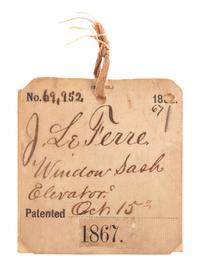 No. 69,952. 1867
J. Le Ferre.
Window Sash
Elevator.
Patented Oct 15th
1867.